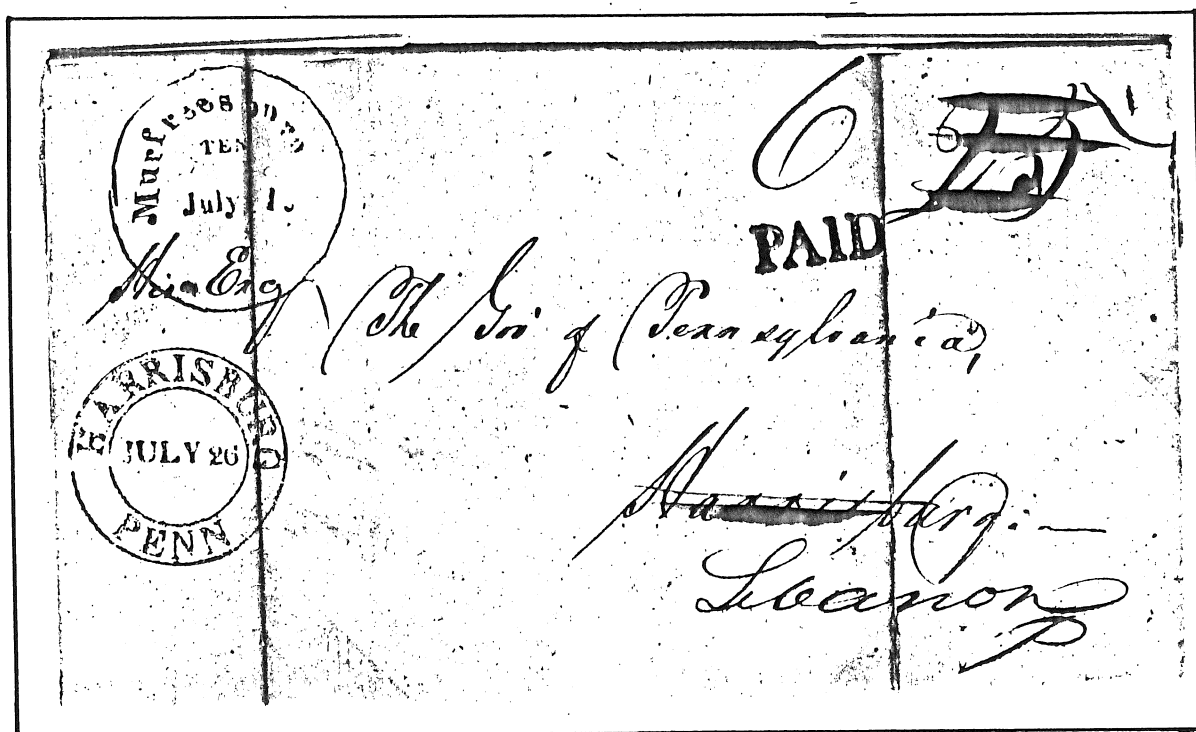 Murfreesboro
TEN
July 1
6
PAID
His Exy
The Gov of Pennsylvania,
HARRISBURG
JULY 26
PENN
Harrisburg:—
Lebanon
P